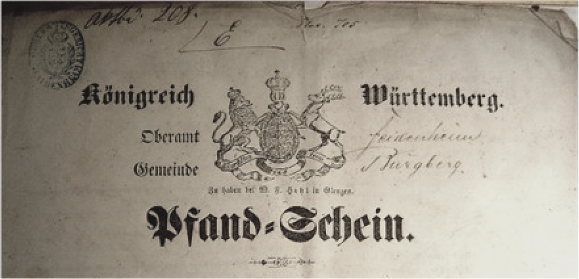 Aktbd. 208.
E
No. 705
Königreich Württemberg.
Oberamt Heidenheim
Gemeinde Burgberg.
Zu haben bei W. F. Hohl in Giengen.
Pfand-Schein.